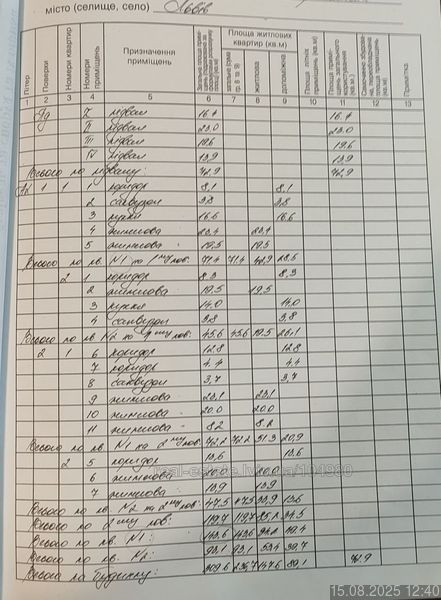 місто (селище, село) Львів
Літер
Поверхи
Номери квартир
Номери приміщень
Призначення приміщень
Площа житлових квартир (кв.м)
загальна (сума гр. 8 та 9)
житлова
допоміжна
Примітка
1 2 3 4 5 6 7 8 9 10 11 12 13
Пд I підвал 16.4 16.4
II підвал 23.0 23.0
III підвал 19.6 19.6
IV підвал 13.9 13.9
Всього по підвалу: 72.9 72.9
1 1 1 коридор 8,1 8,1
2 санвузол 3.8 3.8
3 кухня 16.6 16.6
4 житлова 23.4 23.4
5 житлова 19.5 19.5
Всього по кв. N1 на 1му пов: 71.4 71.4 42.9 28.5
2 1 коридор 8.3 8.3
2 житлова 19.5 19.5
3 кухня 14.0 14.0
4 санвузол 3.8 3.8
Всього по кв N2 на 1му пов: 45.6 45.6 19.5 26.1
2 1 6 коридор 12.8 12.8
7 коридор 4.4 4.4
8 санвузол 3,7 3,7
9 житлова 23.1 23.1
10 житлова 20.0 20.0
11 житлова 8.2 8.2
Всього по кв. N1 на 2му пов: 72.2 72.2 51.3 20.9
2 5 коридор 13.6 13.6
6 житлова 20.0 20.0
7 житлова 13.9 13.9
Всього по кв. N2 на 2му пов: 47.5 47.5 33.9 13.6
Всього по 2му пов: 119.7 119.7 85.2 34.5
Всього по кв. N1: 143.6 143.6 94.2 49.4
Всього по кв. N2: 93.1 93.1 53.4 39.7
Всього по будинку: 309.6 236.7 147.6 89.1 72.9
15.08.2025 12:40